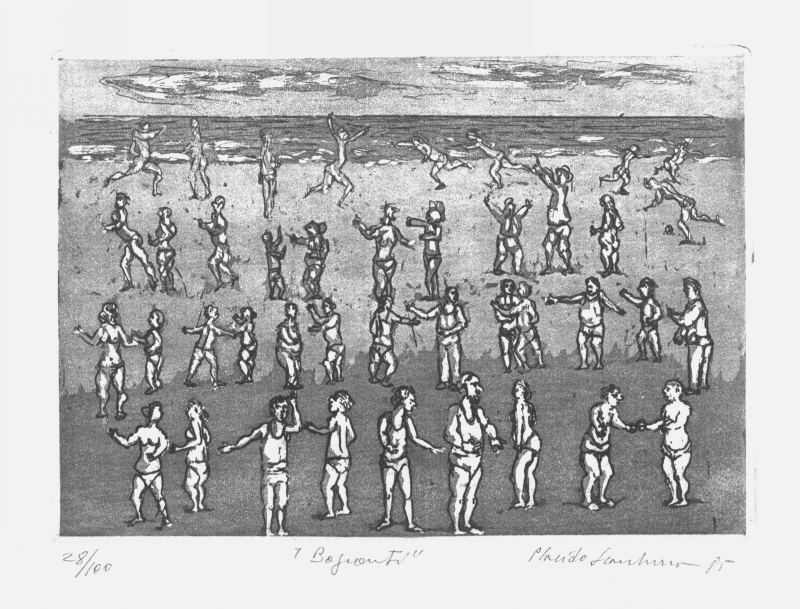 28/100 "Bagnanti" Placido Scandurra 85